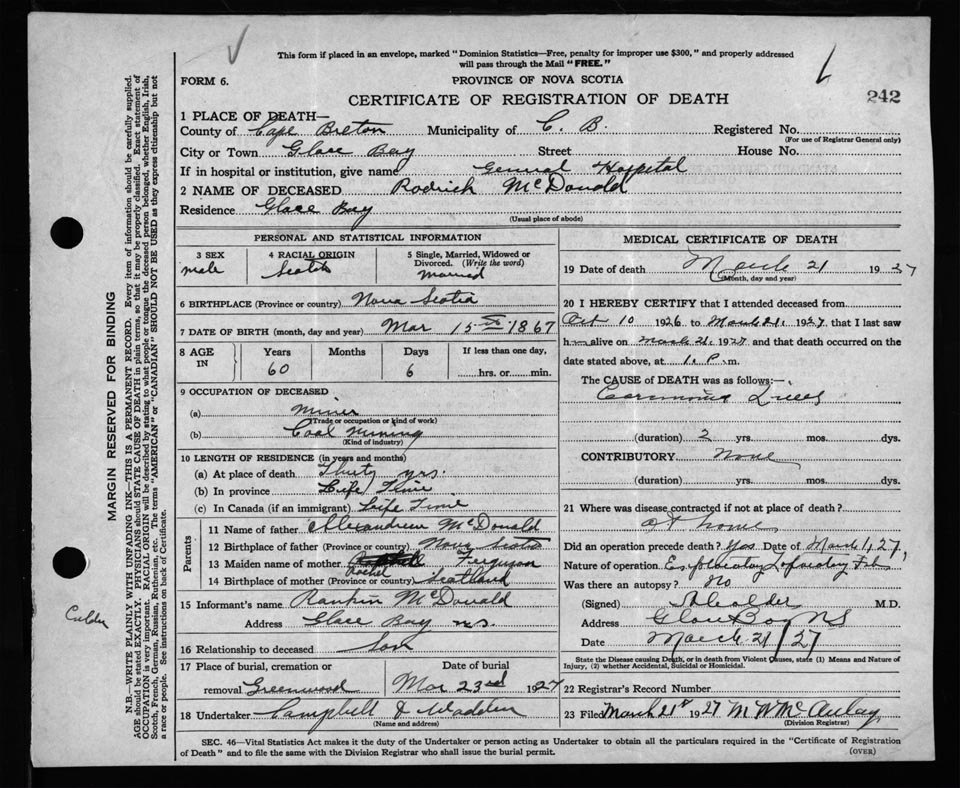 This form if placed in an envelope, marked "Dominion Statistics—Free, penalty for improper use $300," and properly addressed
will pass through the Mail "FREE."
FORM 6.
PROVINCE OF NOVA SCOTIA
242
CERTIFICATE OF REGISTRATION OF DEATH
1 PLACE OF DEATH—
County of Cape Breton Municipality of C. B. Registered No.
(For use of Registrar General only)
City or Town Glace Bay Street House No.
If in hospital or institution, give name General Hospital
2 NAME OF DECEASED Rodrick McDonald
Residence Glace Bay
(Usual place of abode)
PERSONAL AND STATISTICAL INFORMATION
3 SEX 4 RACIAL ORIGIN 5 Single, Married, Widowed or
Divorced. (Write the word)
male Scotch Married
6 BIRTHPLACE (Province or country) Nova Scotia
7 DATE OF BIRTH (month, day and year) Mar 15th 1867
8 AGE IN Years Months Days If less than one day,
60 6 hrs. or min.
9 OCCUPATION OF DECEASED
(a) Miner
(Trade or occupation or kind of work)
(b) Coal Mining
(Kind of industry)
10 LENGTH OF RESIDENCE (in years and months)
(a) At place of death Thirty yrs.
(b) In province Life Time
(c) In Canada (if an immigrant) Life Time
Parents
11 Name of father McDonald
12 Birthplace of father (Province or country) Nova Scotia
13 Maiden name of mother Rachel Ferguson
14 Birthplace of mother (Province or country) Scotland
15 Informant's name Rankin McDonald
Address Glace Bay N.S.
16 Relationship to deceased Son
17 Place of burial, cremation or Date of burial
removal Greenwood Mar 23rd 1927
18 Undertaker Campbell & Wadden
(Name and address)
MEDICAL CERTIFICATE OF DEATH
19 Date of death March 21 1927
(Month, day and year)
20 I HEREBY CERTIFY that I attended deceased from
Oct 10 1926 to March 21, 1927, that I last saw
him alive on March 21, 1927 and that death occurred on the
date stated above, at 1. P. m.
The CAUSE OF DEATH was as follows:—
(duration) 2 yrs. mos. dys.
CONTRIBUTORY None
(duration) yrs. mos. dys.
21 Where was disease contracted if not at place of death?
At home
Did an operation precede death? Yes Date of March 1, 27,
Nature of operation
Was there an autopsy? No
(Signed) M.D.
Address Glace Bay NS
Date March 21/27
State the Disease causing Death, or in death from Violent Causes, state (1) Means and Nature of
Injury, (2) whether Accidental, Suicidal or Homicidal.
22 Registrar's Record Number
23 Filed March 21st 1927 M W McAulay
(Division Registrar)
SEC. 46—Vital Statistics Act makes it the duty of the Undertaker or person acting as Undertaker to obtain all the particulars required in the "Certificate of Registration
of Death" and to file the same with the Division Registrar who shall issue the burial permit.
(OVER)
MARGIN RESERVED FOR BINDING
N.B.—WRITE PLAINLY WITH UNFADING INK—THIS IS A PERMANENT RECORD. Every item of information should be carefully supplied.
AGE should be stated EXACTLY. PHYSICIANS should STATE CAUSE OF DEATH in plain terms, so that it may be properly classified. Exact statement of
OCCUPATION is very important. RACIAL ORIGIN will be described by stating to what people or tongue the deceased person belonged, whether English, Irish,
Scotch, French, German, Russian, Ruthenian, etc. The terms "AMERICAN" or "CANADIAN" SHOULD NOT BE USED as they express citizenship but not
a race or people. See instructions on back of Certificate.